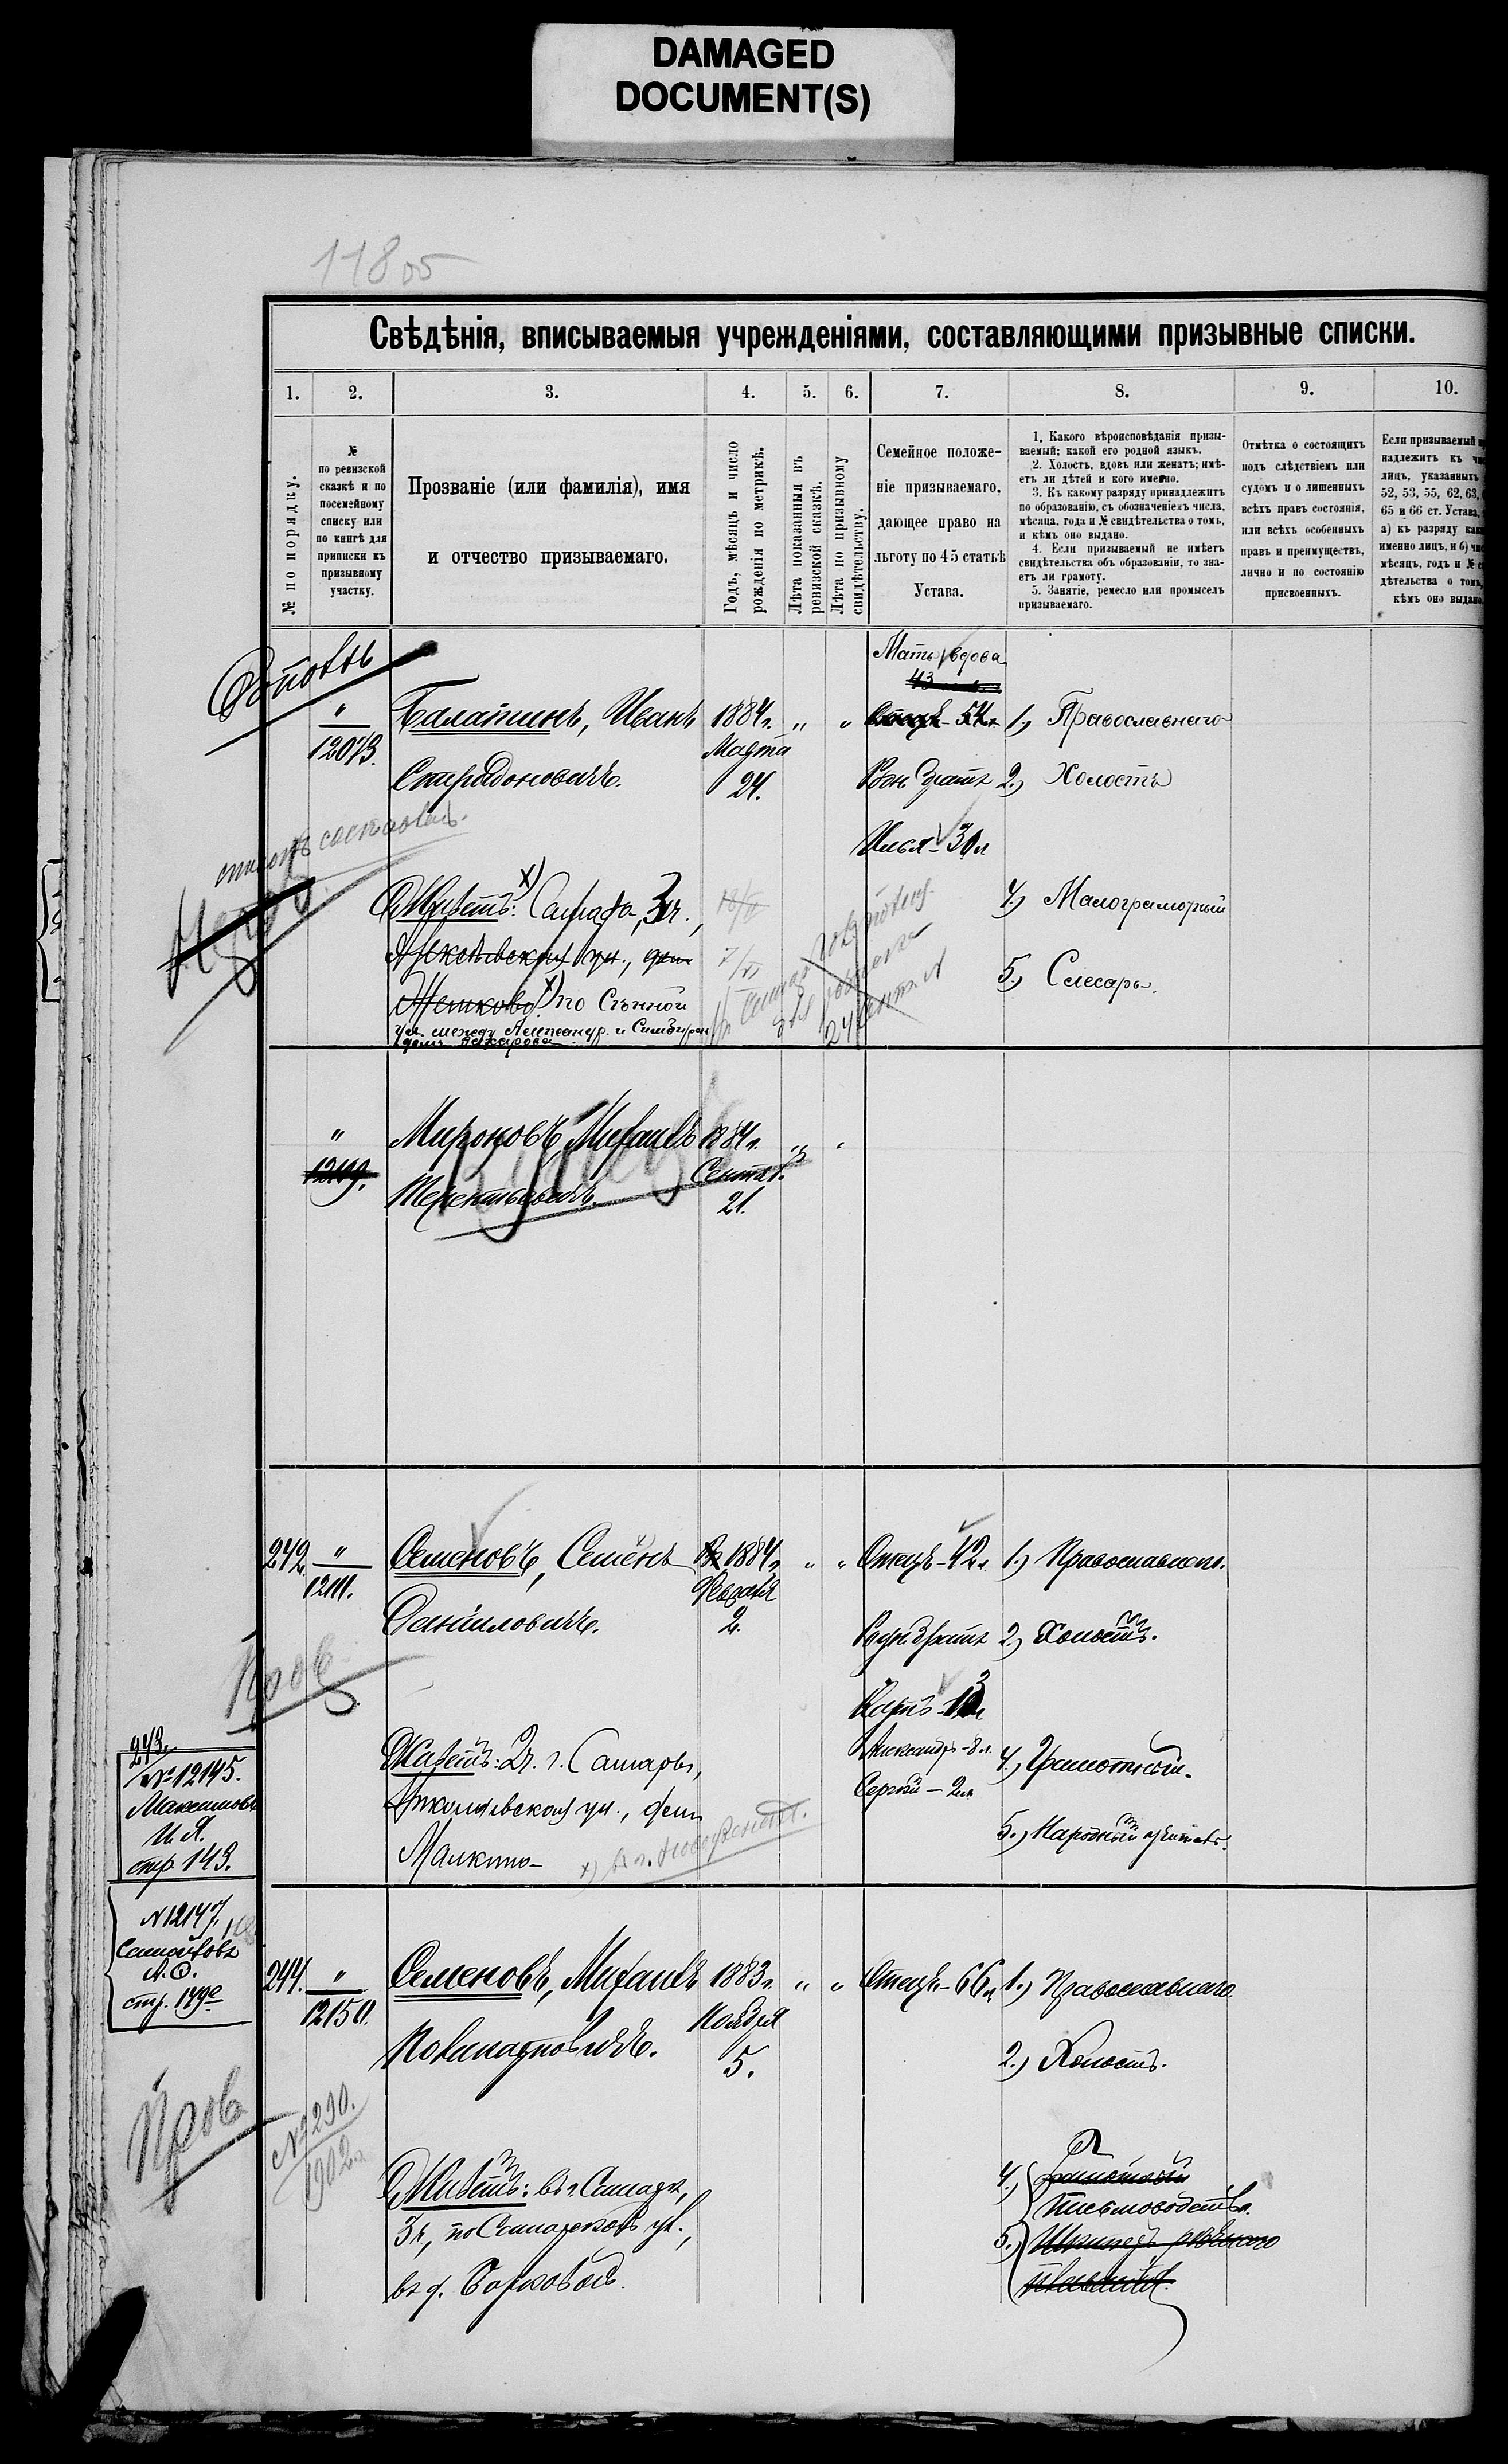 DAMAGED
DOCUMENT(S)
11805
Свѣдѣнія, вписываемыя учрежденіями, составляющими призывные списки.
1. 2. 3. 4. 5. 6. 7. 8. 9. 10.
№ по порядку.
№
по ревизской
сказкѣ и по
посемейному
списку или
по книгѣ для
приписки къ
призывному
участку.
Прозваніе (или фамилія), имя
и отчество призываемаго.
Годъ, мѣсяцъ и число
рожденія по метрикѣ.
Лѣта показанныя въ
ревизской сказкѣ.
Лѣта по призывному
свидѣтельству.
Семейное положе-
ніе призываемаго,
дающее право на
льготу по 45 статьѣ
Устава.
1. Какого вѣроисповѣданія призы-
ваемый; какой его родной языкъ.
2. Холостъ, вдовъ или женатъ; имѣ-
етъ ли дѣтей и кого именно.
3. Къ какому разряду принадлежитъ
по образованію, съ обозначеніемъ числа,
мѣсяца, года и № свидѣтельства о томъ,
и кѣмъ оно выдано.
4. Если призываемый не имѣетъ
свидѣтельства объ образованіи, то зна-
етъ ли грамоту.
5. Занятіе, ремесло или промыселъ
призываемаго.
Отмѣтка о состоящихъ
подъ слѣдствіемъ или
судомъ и о лишенныхъ
всѣхъ правъ состоянія,
или всѣхъ особенныхъ
правъ и преимуществъ,
лично и по состоянію
присвоенныхъ.
Если призываемый
надлежитъ къ
лицъ, указанныхъ
52, 53, 55, 62, 63,
65 и 66 ст. Устава,
а) къ разряду
именно лицъ, и б)
мѣсяцъ, годъ и №
дѣтельства о томъ,
кѣмъ оно выдано.
"
12073.
Балашинъ, Иванъ
Спиридоновичъ.
1884 г.
Марта
24.
" "
Мать вдова
43
Отецъ - 54 л.
Род. братъ
Илья - 30 л
1.) Православнаго
2.) Холостъ
4.) Малограмотный
5.) Слесарь.
Живетъ: Самара, 3 ч.,
ул., домъ
по Сѣнной
ул. между Александр. и Симбирск.
домъ
"
12119.
Мироновъ, Михаилъ
Терентьевичъ.
1884 г.
Сентяб.
21.
" "
242.
"
12111.
Семеновъ, Семенъ
Даниловичъ.
1884 г.
Февраля
2.
" "
Отецъ - 42 л.
Родн. братъ
Карпъ - 13 л
Александръ - 8 л.
Сергѣй - 2 л.
1.) Православнаго.
2.) Холостъ.
4.) Грамотный.
5.) Народный учитель.
Пров
Живетъ: 2 ч. г. Самары,
Николаевская ул., домъ
Малкина
243.
№ 12145.
Максимовъ
И. Я.
стр. 143.
№ 12147.
Самойловъ
А. Ѳ.
244.
"
12150.
Семеновъ, Михаилъ
1883 г.
Ноября
5.
" "
Отецъ - 66 л
1.) Православнаго.
2.) Холостъ.
4.) Грамотный
Письмоводитель.
5.)
Пров
№ 290.
1902 г.
Живетъ: въ г. Самарѣ,
3 ч, по Самарской ул.,
въ д.